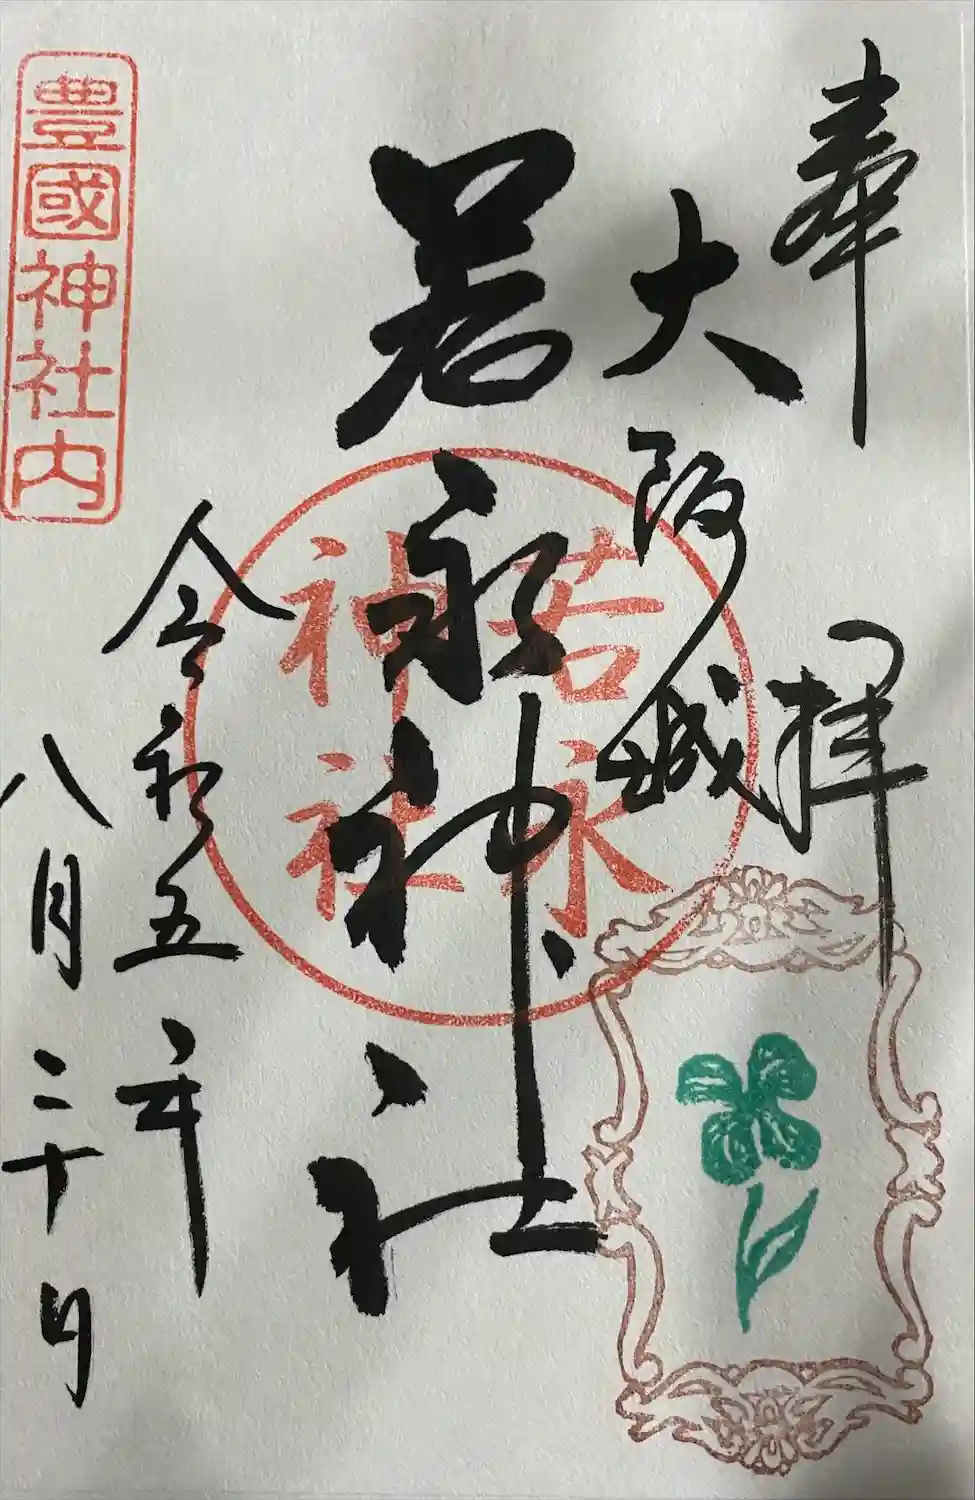 奉拝
大阪城
若永神社
若永
神社
令和五年
八月二十日
豊國神社内